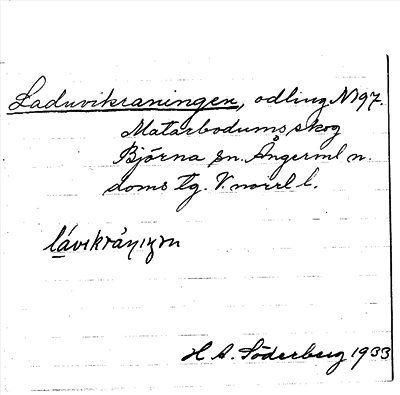 Laduvikraningen, odling N 197.
Matarbodums skog
Björna sn. Ångerml n.
doms tg. V. norrl l.
H A. Söderberg 1933